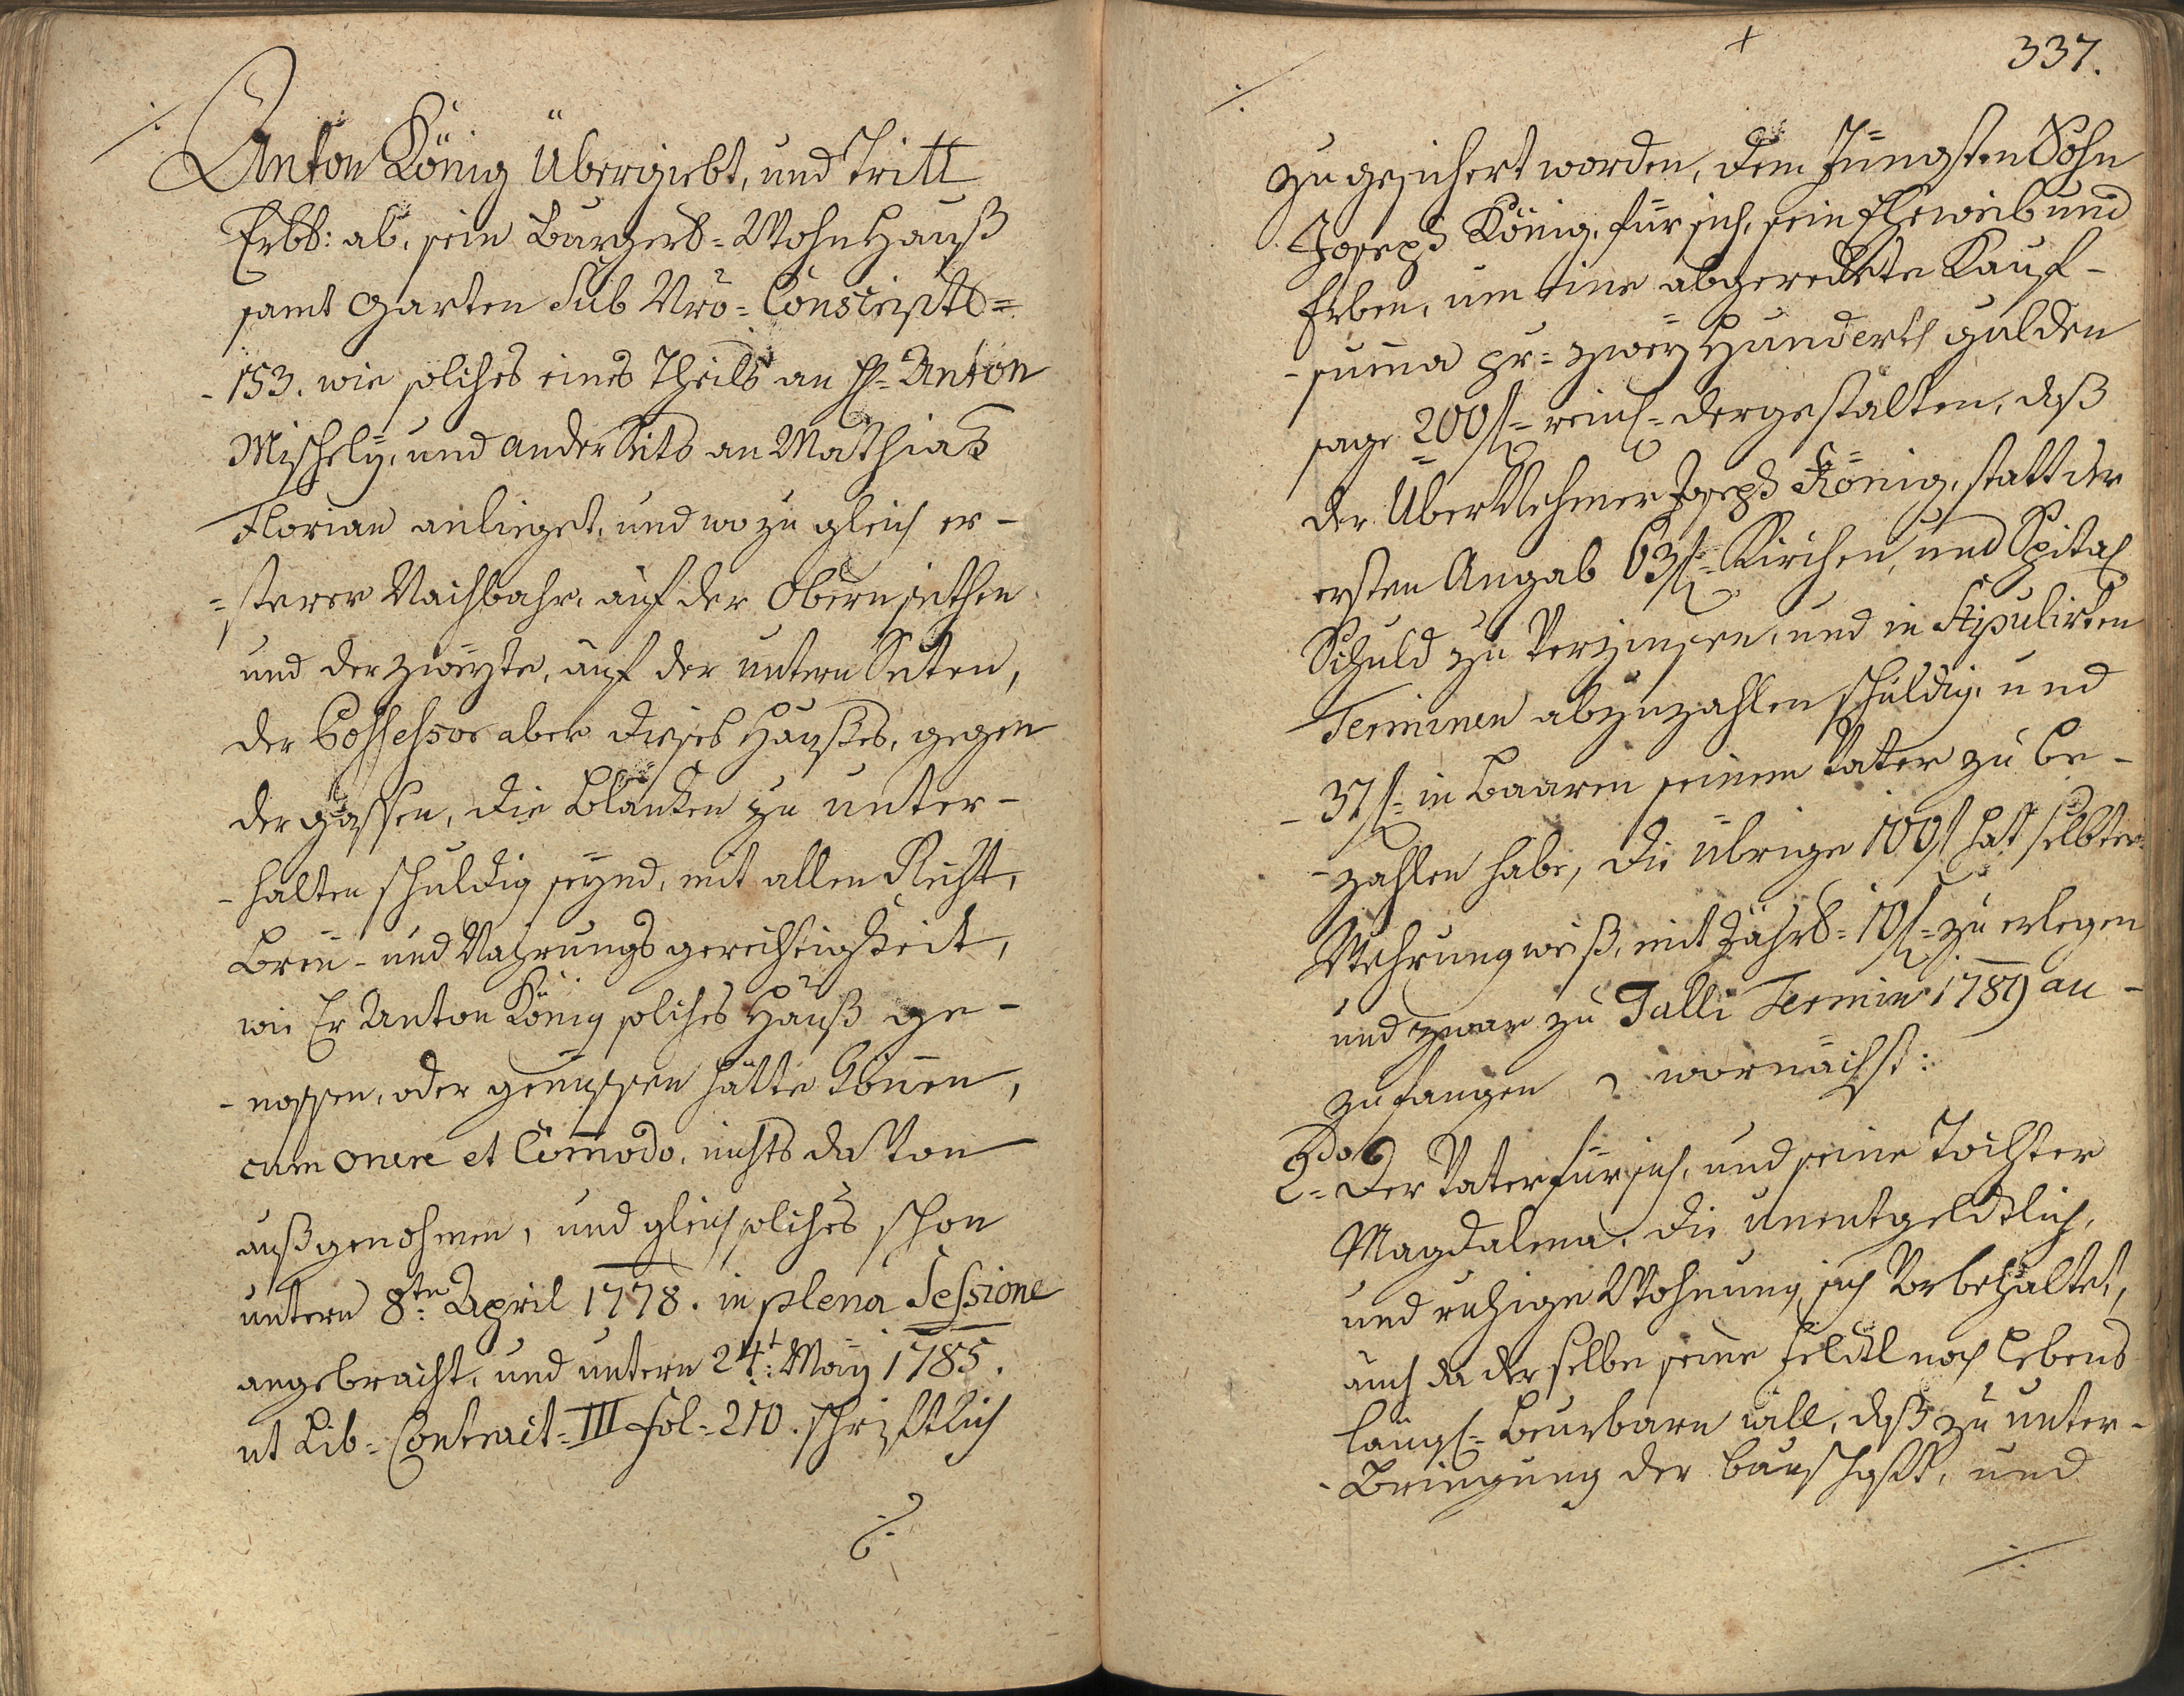 Anton König Übergiebt, und Tritt
Erbl: ab, sein Burgerl=Wohn Hauß
samt Garten Sub Nro= Conscripts=
-153. wie solches eines Theils an H= Anton
Mischely, und anderSeits an Mathias
Florian anlieget, und wozu gleich er-
=sterer Nachbahr, auf der Obern seithen
und der zweÿte, auf der untern Seiten,
der Possessor aber dieses Haußes, gegen
der gassen, die Blanken zu unter-
-halten schuldig seÿnd, mit allen Recht,
Breu- und Nahrungsgerechtigkeit,
wie Er Anton König solches Hauß ge-
-nossen, oder genüssen hätte können,
cum onere et Com̄odo, nichts da Von
außgenohmen, und gleich solches schon
untern 8ten April 1778. in plena Sessione
angebracht, und untern 24t: Maÿ 1785.
ut Lib= Contract= III fol= 210. schriftlich
./.
337.
zugesichert worden, dem Jüngsten Sohn
Joseph König, für sich, sein Eheweib und
Erben, um eine abgeredete Kauf-
-sum̄a pr= zweÿ Hundert gulden
sage 200f= reinl= dergestalten, daß
der ÜberNehmer Joseph König, statt der
ersten Angab 63f= Kirchen, und Spital
Schuld zu Verzinsen, und in Stipulirten
Terminen abzuzahlen schuldig, und
-37f= in Baaren seinem Vater zu be-
-zahlen habe, die übrige 100f hat selbter
Wehrungweiß, mit Jährl= 10f= zu erlegen
und zwar zu Galli Termin 1789 an-
zufangen wornächst:
2do= Der Vater für sich, und seine Tochter
Magdalena, die unentgeldtlich,
und ruhige Wohnung sich Vorbehaltet,
auch da derselbe seine Feldtl noch lebens
längl= beurbarn will, daß zu unter-
-Bringung der bauschaft, und
./.